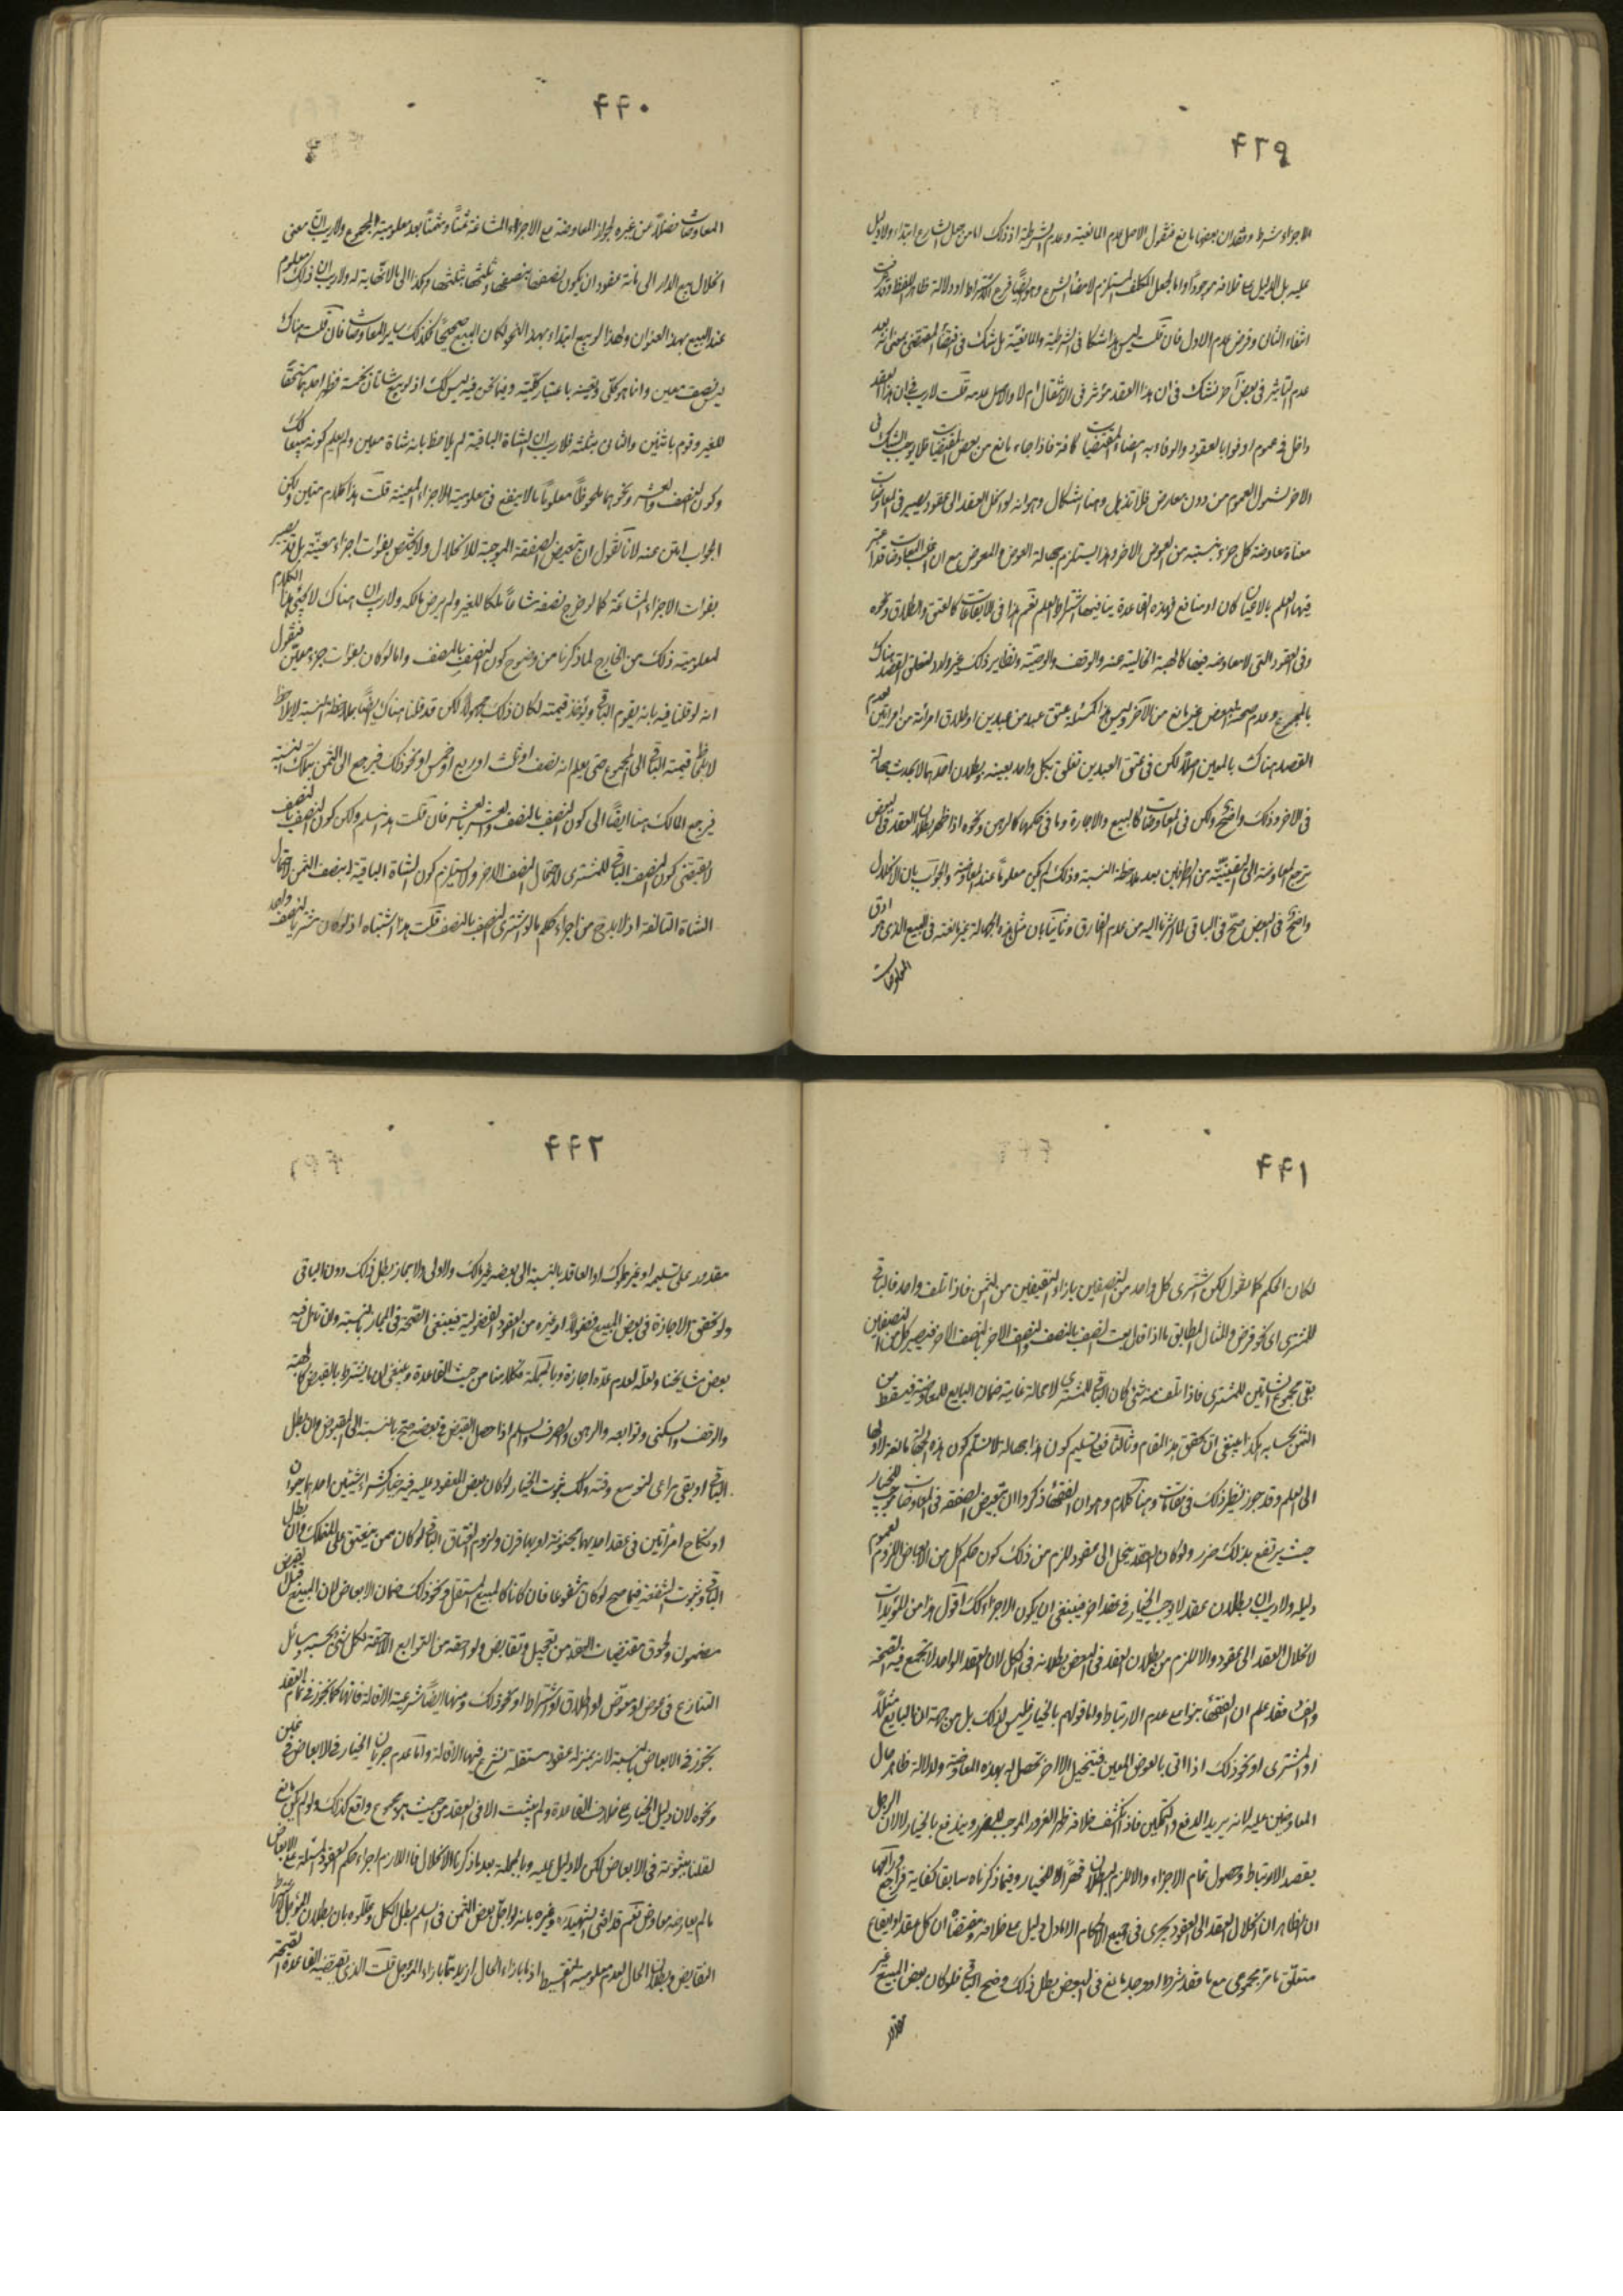 ٤٣٩
الاجزاء شرط وفقدان بعضها مانع فنقول الاصل عدم المانعية وعدم الشرطية اذ ذلك اما من جعل الشارع ابتداء ولا دليل
عليه بل الدليل على خلافه موجود واما بجعل المكلف المستلزم لامضاء الشرع وهو ايضا فرع الاشتراط او دلالة ظاهر اللفظ وقد
انتفاء الثاني وفرض عدم الاول فان قلت ليس هذا شكا في الشرطية والمانعية بل شك في اقتضاء المقتضي بمعنى انه بعد
عدم التاثير في بعض آخر نشك في ان هذا العقد مؤثر في الانتقال ام لا والاصل عدمه قلت لا ريب في ان هذا العقد
داخل في عموم اوفوا بالعقود والوفاء به امضاء المقتضيات كافة فاذا جاء مانع من بعض المقتضيات فلا يوجب الشك في
الاخر لشمول العموم من دون معارض فلا تذهل وهنا اشكال وهو انه لو انحل العقد الى عقود يصير في المعاوضات
معناه معاوضة كل جزء بنسبته من العوض الاخر وهذا يستلزم جهالة العوض والمعوض مع ان اغلب المعاوضات قد اعتبر
فيها العلم بالاعيان كان او منافع فهذه القاعدة ينافيها اشتراط العلم نعم هذا في الايقاعات كالعتق والطلاق ونحوه
وفي العقود التي لا معاوضة فيها كالهبة الخالية عنه والوقف والوصية ونظاير ذلك غير وارد لتعلق القصد هناك
بالمجموع وعدم صحة البعض غير مانع من الآخر وليس هذا كمسئلة عتق عبد من عبدين او طلاق امرئة من امرئتين لعدم
القصد هناك بالمعين اصلا لكن في عتق العبدين تعلق بكل واحد بعينه وبطلان احدهما لا يحدث جهالة
في الاخر وذلك واضح ولكن في المعاوضات كالبيع والاجارة وما في حكمها كالرهن ونحوه اذا ظهر بطلان العقد في البعض
ترجع المعاوضة الى البقيتين من الطرفين بعد ملاحظة النسبة وذلك لم يكن معلوما عند المعاوضة والجواب بان الانحلال
واضح في البعض صح في الباقي لما اشرنا اليه من عدم الفارق وثانيا بان مثل هذه الجهالة غير مانعة في البيع الذي هو ادق
المعاوضات
٤٤٠
المعاوضات فضلا عن غيره لجواز المعاوضة مع الاجزاء المشاعة ثمنا ومثمنا بعد معلومية المجموع ولا ريب ان معنى
انحلال بيع الدار الى مائة عقود ان يكون نصفها بنصفها وثلثها بثلثها وهكذا الى ما لا نهاية له ولا ريب ان ذلك معلوم
عند البيع بهذا العنوان ولهذا لو بيع ابتداء بهذا النحو لكان البيع صحيحا فكذلك ساير المعاوضات فان قلت هناك
ليس نصف معين وانما هو كلي وتعينه باعتبار كليته وفيما نحن فيه ليس كك اذ لو بيع شاتان بخمسة فظهر احدهما مستحقا
للغير وقوم باثنين والثاني بثلثة فلا ريب ان الشاة الباقية لم يلاحظ بانه شاة معين ولم يعلم كونه مبيعا كك
وكون النصف والعشر ونحوهما ملحوظا معلوما بالاينفع في معلومية الاجزاء المعينة قلت هذا كلام متين ولكن
الجواب امتن عنه لانا نقول ان تبعيض الصفقة الموجبة للانحلال ولا يختص بفوات اجزاء معينة بل قد يصير
بفوات الاجزاء المشاعة كما لو خرج نصفه مشاعا ملكا للغير ولم يرض مالكه ولا ريب ان هناك لا يجيء هذا الكلام
لمعلومية ذلك من الخارج لما ذكرنا من وضوح كون النصف بالنصف واما لو كان بفوات جزء معين فنقول
انه لو قلنا فيه بانه يقوم الباقي ويؤخذ قيمته لكان ذلك مجهولا لكن قد قلنا هناك ايضا بملاحظة النسبة لا يلاحظ
لا يلاحظ قيمة الباقي الى المجموع حتى يعلم انه نصف او ثلث او ربع او خمس او نحو ذلك فيرجع الى الثمن بتلك النسبة
فيرجع المالك هنا ايضا الى كون النصف بالنصف والعشر بالعشر فان قلت هذا مسلم ولكن كون النصف بالنصف
لا يقتضي كون النصف الباقي للمشتري لاحتمال النصف الاخر ولا يستلزم كون الشاة الباقية بنصف الثمن لاحتمال
الشاة التالفة اذ لا يلوح من اجزاء حكم ما لو اشترى النصف بالنصف قلت هذا اشتباه اذ لو كان مشتر بالنصف واحد
٤٤١
لكان الحكم كما يقول لكن اشترى كل واحد من النصفين بازاء النصفين من الثمن فاذا تلف واحد فالباقي
للمشتري اي نحو فرض والمثال المطابق ما اذا قال بعت النصف بالنصف والنصف الاخر بالنصف الاخر فيصير كل من النصفين
بقي مجموع الشاتين للمشتري فاذا تلف منه شيء كان الباقي للمشتري لا محالة غاية ضمان البايع للمعاوضة فيسقط من
الثمن بحسابه هكذا ينبغي ان يحقق هذا المقام وثالثا مع تسليم كون هذا جهالة لا نسلم كون هذه الجهالة مانعة لاولها
الى العلم وقد جوز نظير ذلك في مقامات وهنا كلام وهو ان الفقهاء ذكروا ان تبعيض الصفقة في المعاوضات موجب للخيار
حيث يرتفع بذلك ضرر ولو كان العقد ينحل الى عقود للزم من ذلك كون حكم كل من الابعاض اللزوم لعموم
دليله ولا ريب ان بطلان عقد لا يوجب الخيار في عقد اخر فينبغي ان يكون الاجزاء كك اقول هذا من المؤيدات
لانحلال العقد الى عقود والا للزم من بطلان العقد في البعض بطلانه في الكل لان العقد الواحد لا يجتمع فيه الصحة
والفساد فقد علم ان الفقهاء بنوا مع عدم الارتباط واما قولهم بالخيار فليس لذلك بل من جهة ان البايع مثلا
او المشتري او نحو ذلك اذا اتى بالعوض المعين فيتخيل الآخر تحصل له بهذه المعاوضة ولدلالة ظاهر حال
المعاوضين عليه لانه يريد الدفع والتمكين فاذا انكشف خلافه ظهر الغرور الموجب للضرر ويندفع بالخيار لا لان الرجل
يقصد الارتباط وحصول تمام الاجزاء والا للزم البطلان قهرا لا الخيار وفيما ذكرناه سابقا كفاية فراجع
ان الظاهر ان انحلال العقد الى العقود يجري في جميع الاحكام الا ما دل دليل على خلافه ومقتضاه ان كل عقد او ايقاع
متعلق بامر مجموعي مع ما فقد شرط او وجد مانع في البعض بطل ذلك وصح الباقي فلو كان بعض المبيع غير
مقدور
٤٤٢
مقدور على تسليمه او غير مملوك او العاقد بالنسبة الى بعضه غير مالك ولا ولي ولا مجاز بطل ذلك دون الباقي
ولو تحقق الاجازة في بعض المبيع فضولا او غيره من العقود الفضولية فينبغي الصحة في المجاز بنسبته وان تامل فيه
بعض مشايخنا ولعله لعدم عده اجازة وبالجملة فكلامنا من حيث القاعدة وينبغي ان ما يشترط بالقبض كالهبة
والوقف والسكنى وتوابعه والرهن والصرف والسلم اذا حصل القبض في بعضه صح بالنسبة الى المقبوض وان بطل
الباقي او بقي مراعى لو توسع وقته وكك ثبوت الخيار لو كان بعض المعقود عليه فيه خيار كشراء شيئين احدهما حيوان
او نكاح امرأتين في عقد احديهما مجنونة او بها قرن ولزوم انعتاق الباقي لو كان ممن ينعتق على المتملك وان بطل
الباقي وثبوت الشفعة فيما صح لو كان مشفوعا فان كانا كالمبيع المستقل ونحو ذلك ضمان الابعاض لان المبيع قبل القبض
مضمون ولحوق مقتضيات العقد من تعجيل وتقابض ولواحقه من التوابع اللاحقة لكل شيء بحسبه ومسائل
التنازع في عوض او معوض او اطلاق او اشتراط او نحو ذلك ومنها ايضا شرعية الاقالة فانها كما يجوز في تمام العقد
يجوز في الابعاض بالنسبة لانه بمنزلة عقود مستقلة تشرع فيها الاقالة واما عدم جريان الخيار في الابعاض
ونحوه لان دليل الخيار على خلاف القاعدة ولم يثبت الا في العقد من حيث هو مجموع واقع كذلك ولو لم يكن مانع
لقلنا بثبوته في الابعاض لكن لا دليل عليه وبالجملة بعد ما ذكرنا الانحلال فاللازم اجراء حكم العقود المستقلة على الابعاض
ما لم يعارضه معارض نعم قد افتى الشهيد وغيره بانه لو اجل بعض الثمن في السلم بطل الكل وعللوه بان بطلان المؤجل لاشتراط
التقابض وبطلان الحال لعدم معلومية التقسيط اذ ما بازاء الحال ازيد مما بازاء المؤجل قلت الذي يقتضيه القاعدة الصحة